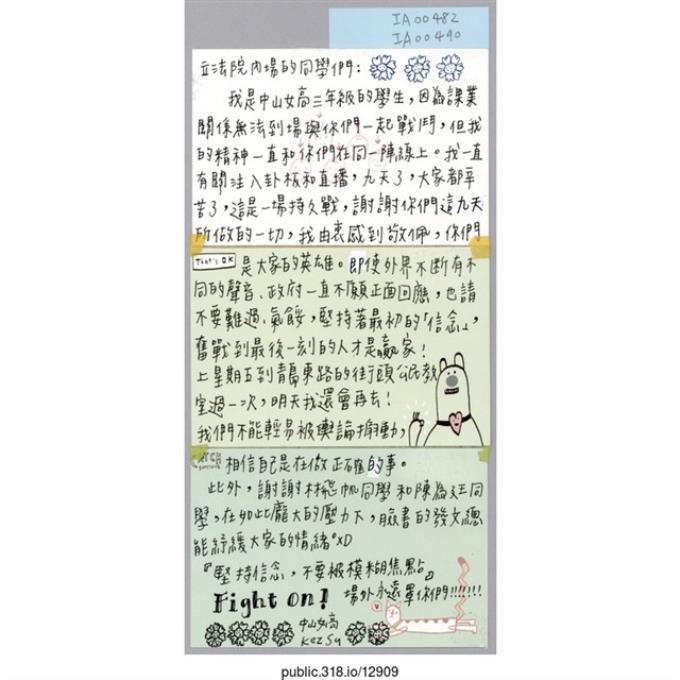 IA00482
IA00490
立法院內場的同學們：
我是中山女高三年級的學生，因為課業
關係無法到場與你們一起戰鬥，但我
的精神一直和你們在同一陣線上。我一直
有關注八卦板和直播，九天了，大家都辛
苦了，這是一場持久戰，謝謝你們這九天
所做的一切，我由衷感到敬佩，你們
That's OK 是大家的英雄。即使外界不斷有不
同的聲音、政府一直不願正面回應，也請
不要難過、氣餒，堅持著最初的「信念」，
奮戰到最後一刻的人才是贏家！
上星期五到青島東路的街頭公民教
室過一次，明天我還會再去！
我們不能輕易被輿論撏動，
相信自己是在做正確的事。
此外，謝謝林飛帆同學和陳為廷同
學，在如此龐大的壓力下，臉書的發文總
能紓緩大家的情緒。XD
『堅持信念，不要被模糊焦點。』
Fight on! 場外永遠罩你們!!!!!!!
中山女高
Kez Su
public.318.io/12909